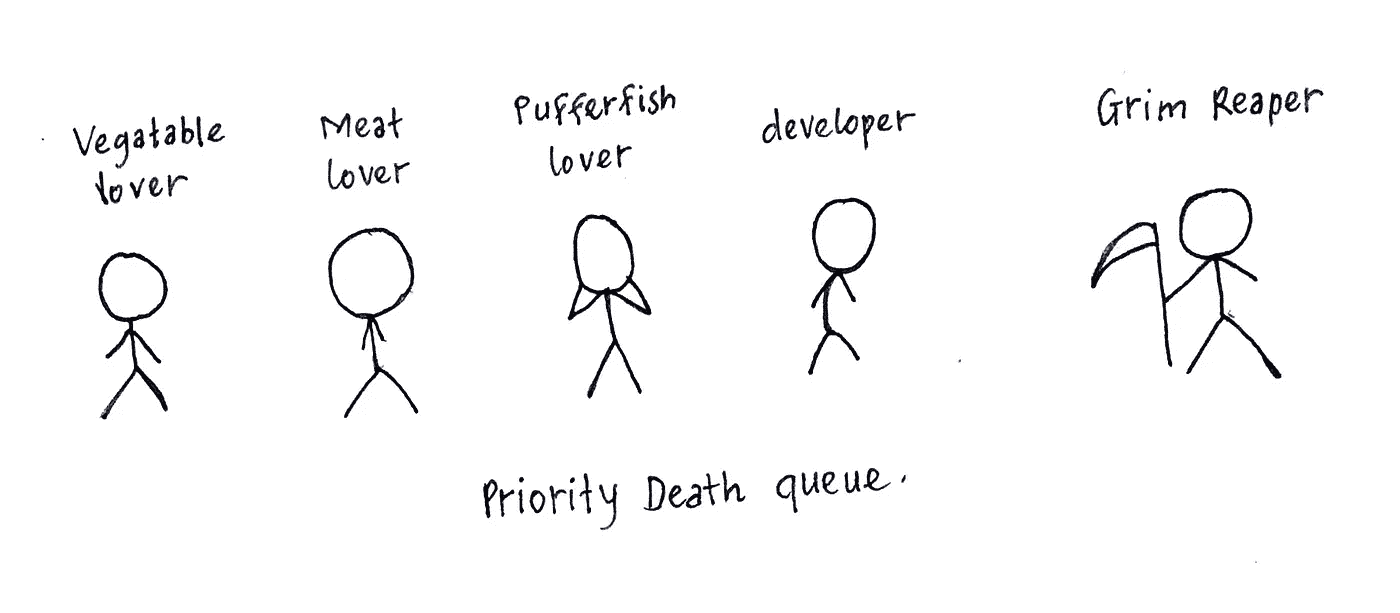 Vegatable
lover
Meat
lover
Pufferfish
lover
developer
Grim Reaper
Priority Death queue.